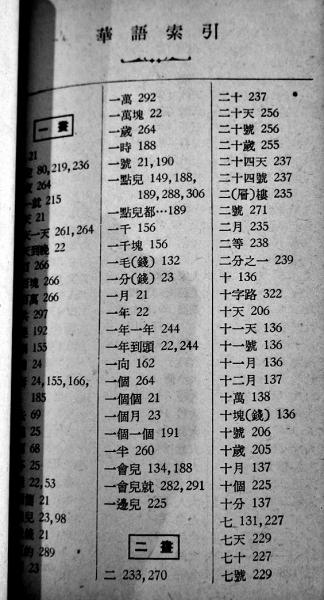 華語索引
一畫
21
80,219,236
264
215
21
一天 261,264
22
266
266
266
297
192
155
24
24,155,166,
185
69
25
68
25
22,53
21
23,98
21
289
23
一萬 292
一萬塊 22
一歲 264
一時 188
一號 21,190
一點兒 149,188,
189,288,306
一點兒都…189
一千 156
一千塊 156
一毛(錢) 132
一分(錢) 23
一月 21
一年 22
一年一年 244
一年到頭 22,244
一向 162
一個 264
一個個 21
一個月 23
一個一個 191
一半 260
一會兒 134,188
一會兒就 282,291
一邊兒 225
二畫
二 233,270
二十 237
二十天 256
二十號 256
二十歲 255
二十四天 237
二十四號 237
二(層)樓 235
二號 271
二月 235
二等 238
二分之一 239
十 136
十字路 322
十天 206
十一天 136
十一號 136
十一月 136
十二月 137
十萬 138
十塊(錢) 136
十號 206
十歲 205
十月 137
十個 225
十分 137
七 131,227
七天 229
七十 227
七號 229